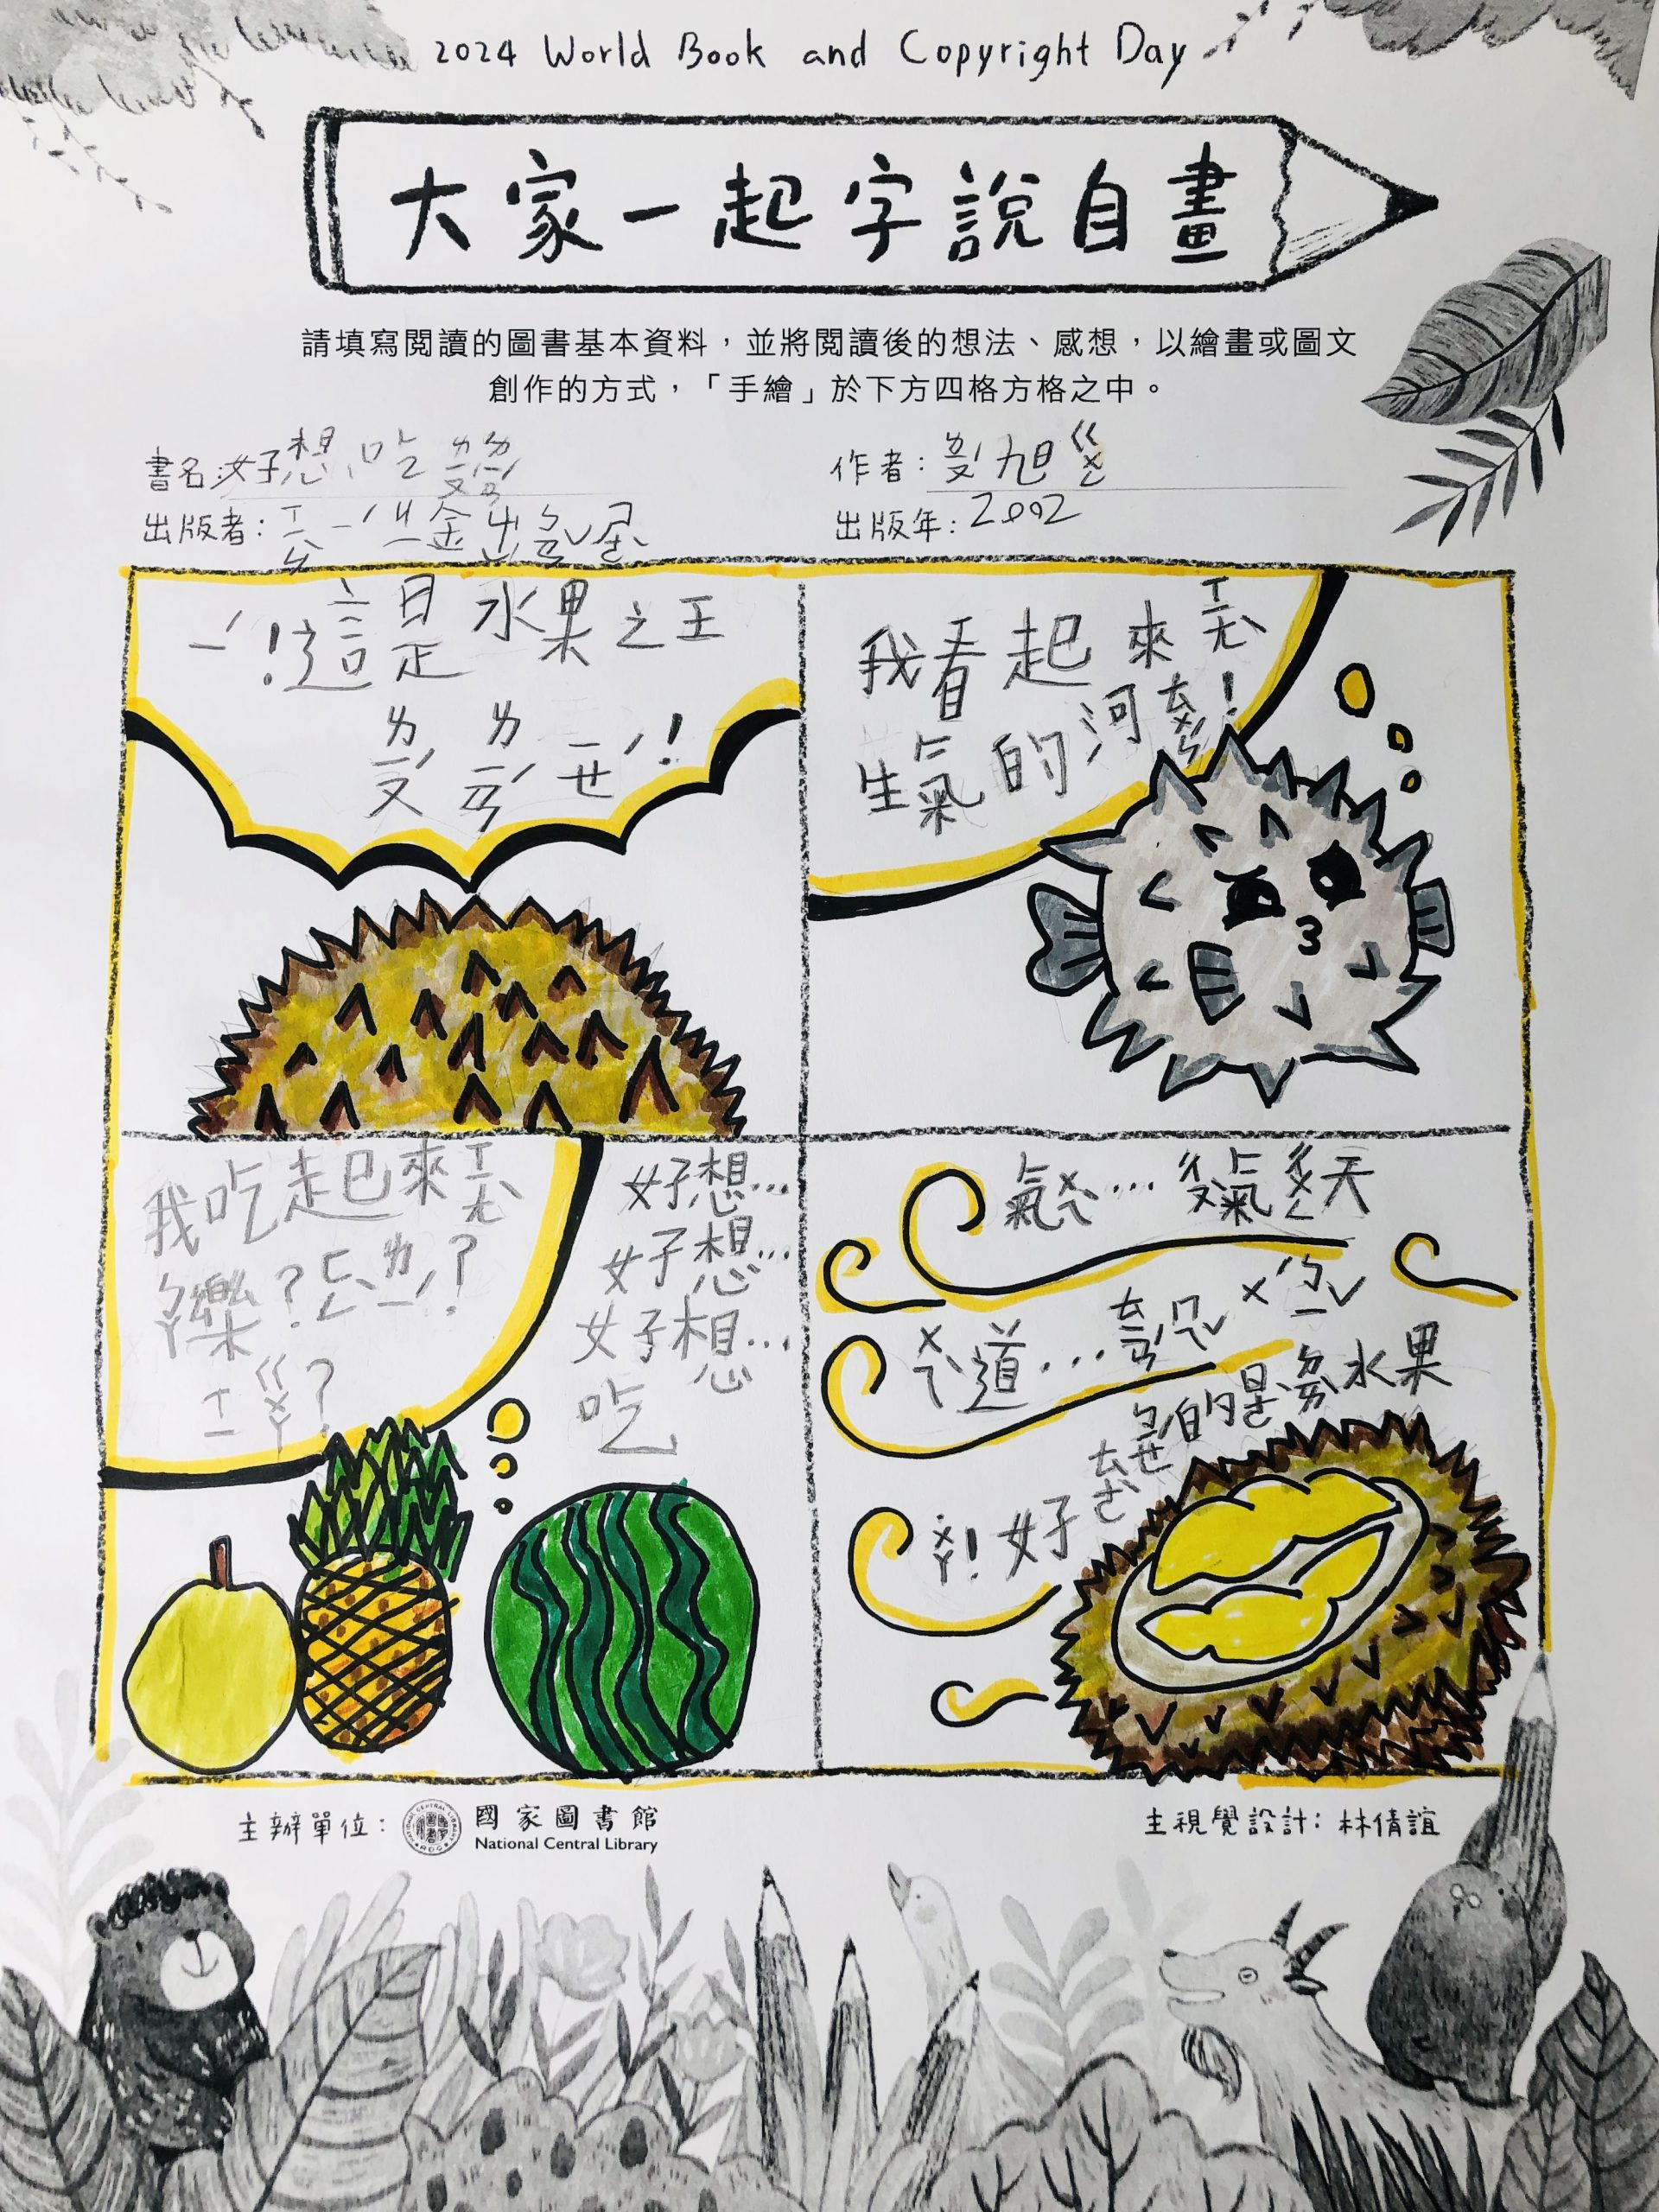 2024 World Book and Copyright Day
大家一起字說自畫
請填寫閱讀的圖書基本資料，並將閱讀後的想法、感想，以繪畫或圖文
創作的方式，「手繪」於下方四格方格之中。
書名：好想吃ㄌㄧㄡˊㄌㄧㄢˊ
作者：ㄌㄧㄡˊ旭ㄍㄨㄥ
出版者：
出版年：2002
ㄧˊ！這是水果之王
ㄌㄧㄡˊㄌㄧㄢˊㄧㄝˊ！
我看起來ㄒㄧㄤˋ
生氣的河ㄊㄨㄣˊ！
我吃起來ㄒㄧㄤˋ
ㄅㄚ樂？ㄈㄥˋㄌㄧˊ？
ㄒㄧㄍㄨㄚ？
好想…
好想…
好想…
吃
氣ㄨㄟˋ…ㄔㄡˋ氣ㄔㄨㄥ天
ㄨㄟˋ道…ㄊㄧㄢˊㄇㄟˇㄨˊㄅㄧˇ
的是水果
ㄨㄚ！好
主辦單位：國家圖書館
National Central Library
主視覺設計：林倩誼